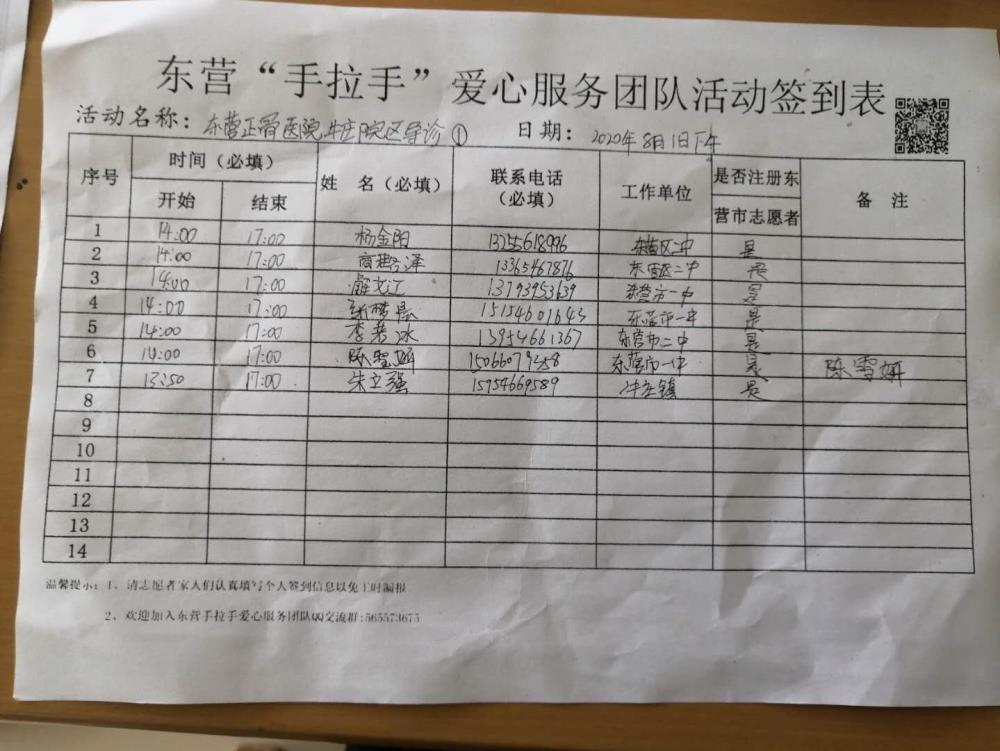 东营“手拉手”爱心服务团队活动签到表
活动名称：东营正骨医院牛庄院区导诊① 日期：2020年8月1日下午
序号 时间（必填） 姓 名（必填） 联系电话（必填） 工作单位 是否注册东营市志愿者 备 注
开始 结束
1 14:00 17:00 杨金阳 13255618996 东营区二中 是
2 14:00 17:00 商 泽 13365467876 东营区二中 是
3 14:00 17:00 解文江 13793953639 东营市一中 是
4 14:00 17:00 15154601643 东营市一中 是
5 14:00 17:00 李若冰 13954661367 东营市二中 是
6 14:00 17:00 陈雪妍 15066079458 东营市一中 是 陈雪妍
7 13:50 17:00 朱立强 15954669589 牛庄镇 是
8
9
10
11
12
13
14
温馨提示：1、请志愿者家人们认真填写个人签到信息以免工时漏报
2、欢迎加入东营手拉手爱心服务团队QQ交流群:565573675